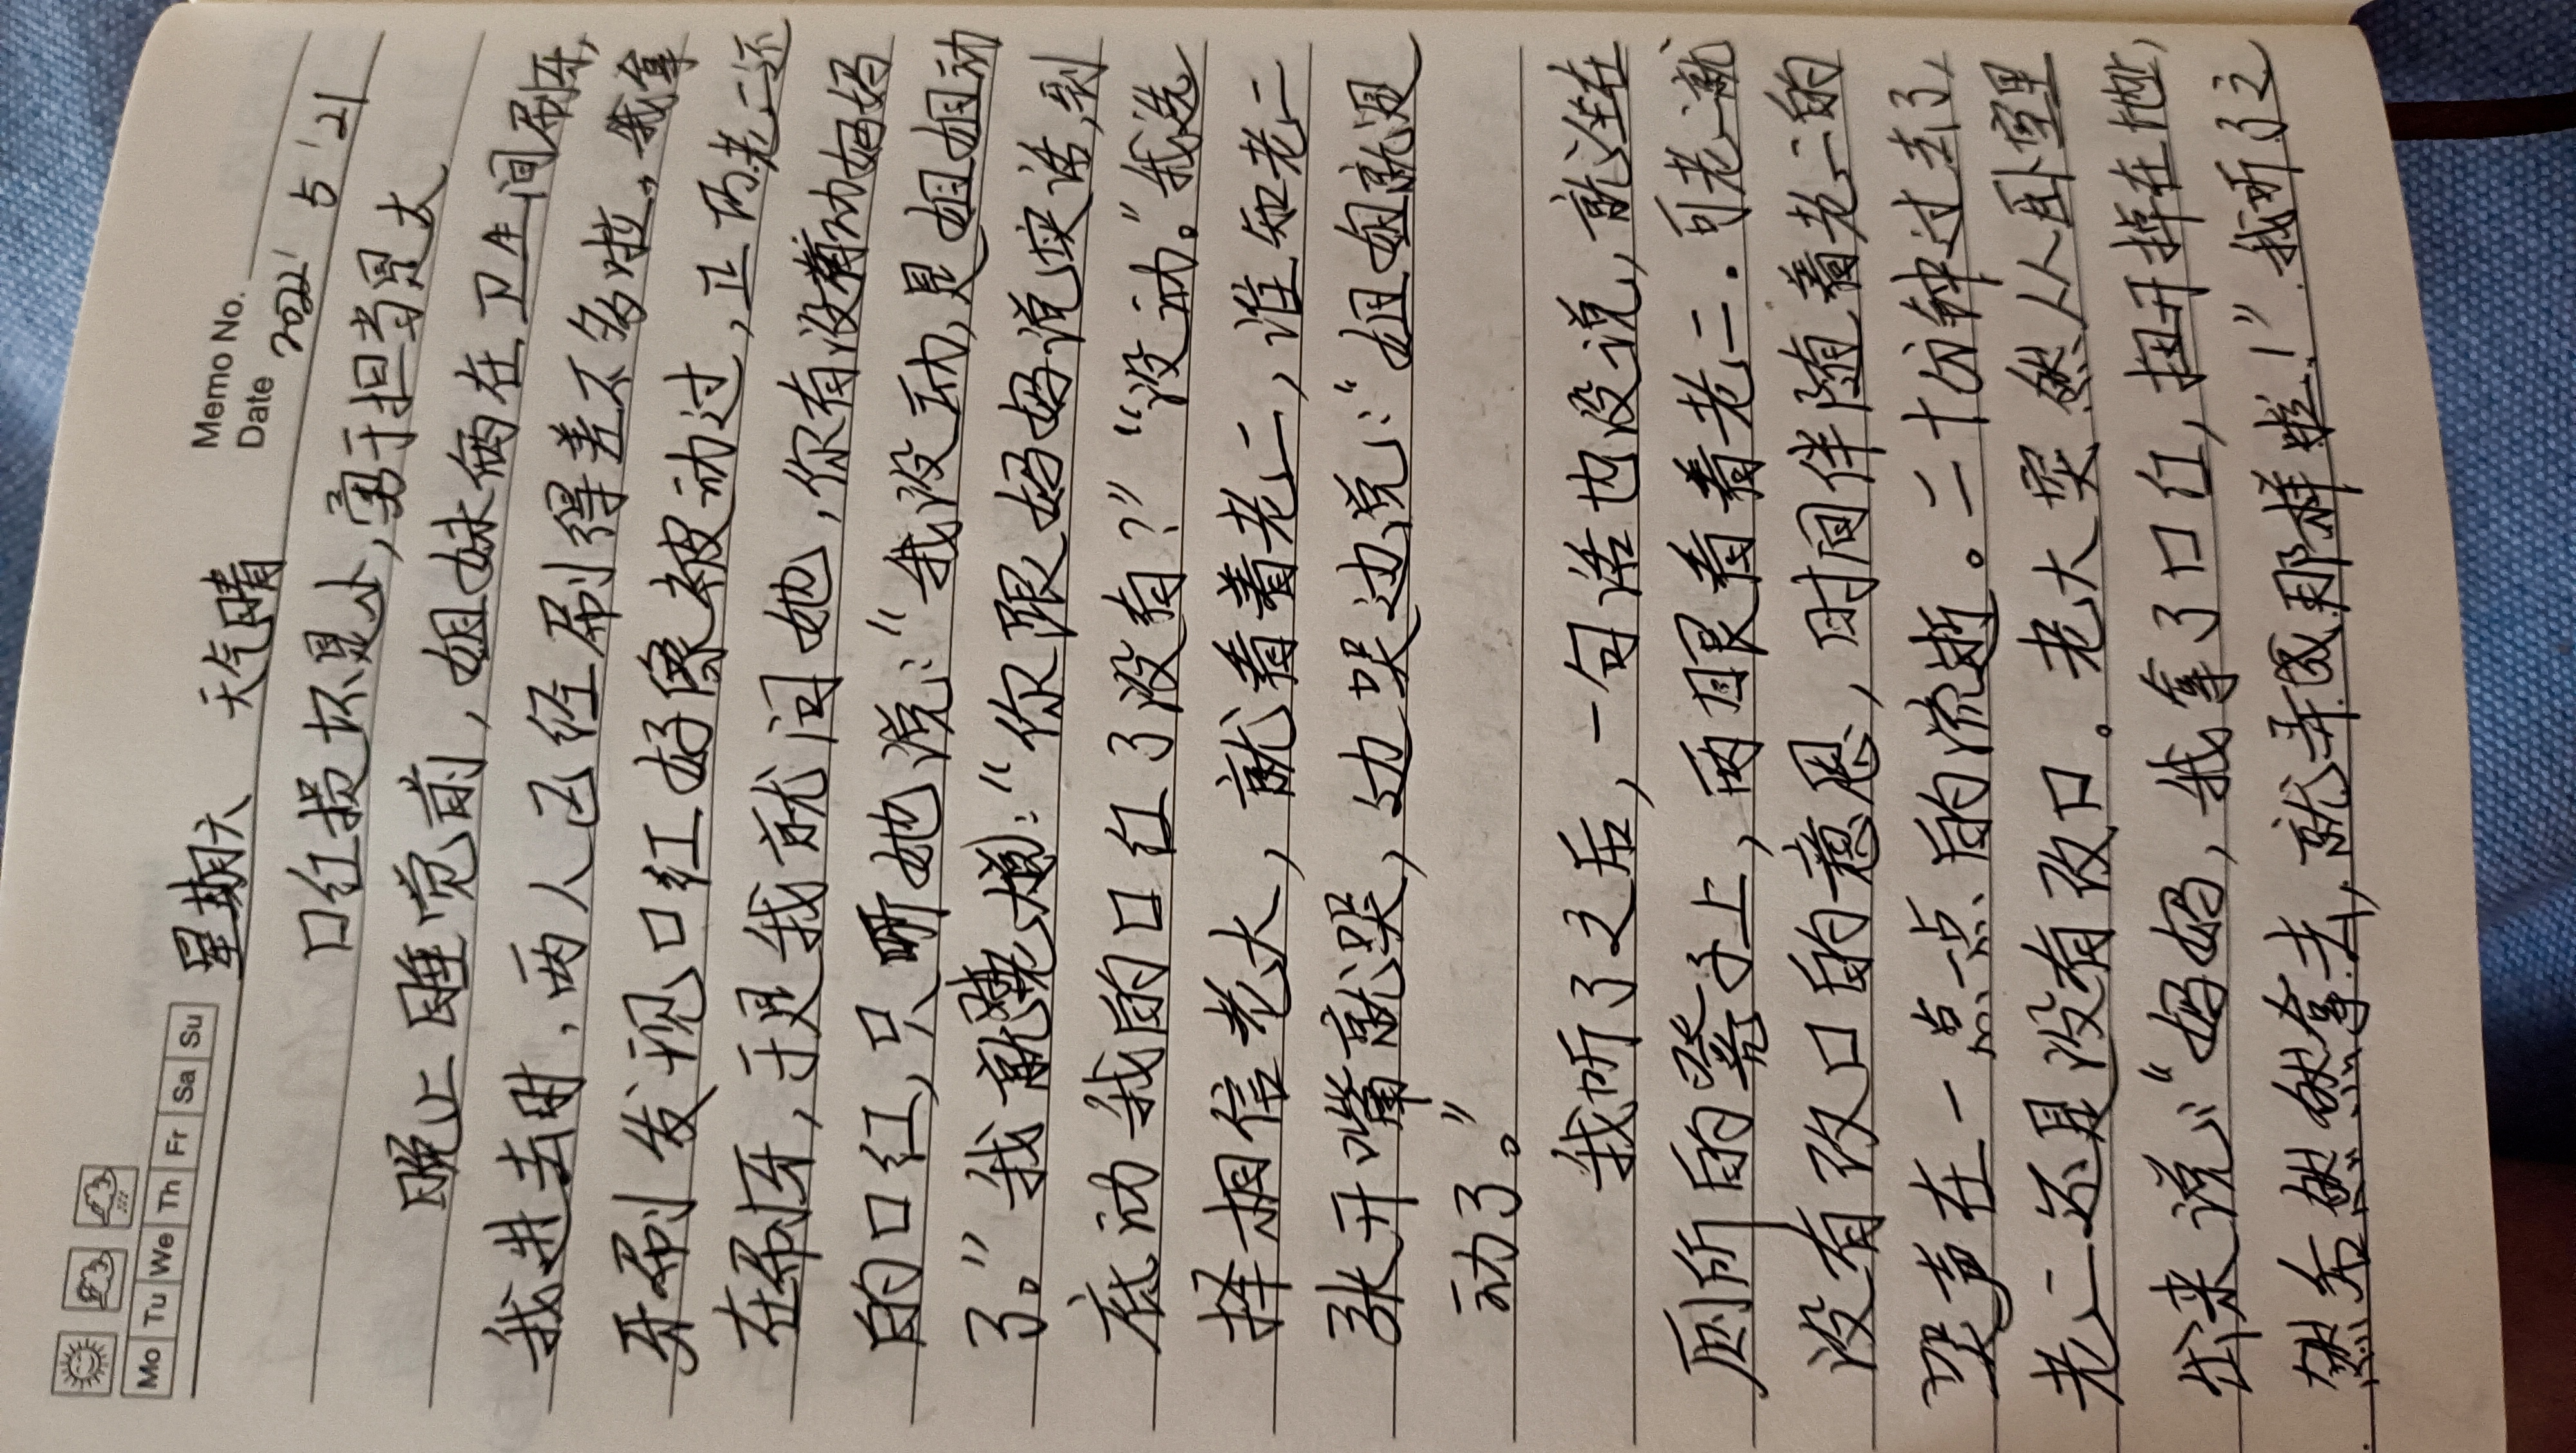 Memo No.
Mo Tu We Th Fr Sa Su
Date 2022 5 '21
星期六 天气晴
口红损坏是小，勇于担当是大
晚上睡觉前，姐妹俩在卫生间刷牙，
我进去时，两人已经刷得差不多啦。我拿
牙刷发现口红好像被动过，正巧老二还
在刷牙，于是我就问她，你有没有动妈妈
的口红，只听她说：“我没动，是姐姐动
了。”我就嚷大嫚：“你跟妈妈说实话，到
底动我的口红了没有？”“没动。”我选
择相信老大，就看着老二，谁知老二
张开嘴就哭，边哭边说：“姐姐就是
动了。”
我听了之后，一句话也没说，就坐在
厕所的凳子上，两眼看着老二.可老二就
没有改口的意思，时间伴随着老二的
哭声在一点一点的流逝。二十分钟过去了，
老二还是没有改口。老大突然从卧室里
出来说：“妈妈，我拿了口红，扭开掉在地，
然后悠悠然拿去，就弄成那样啦！”我听了之